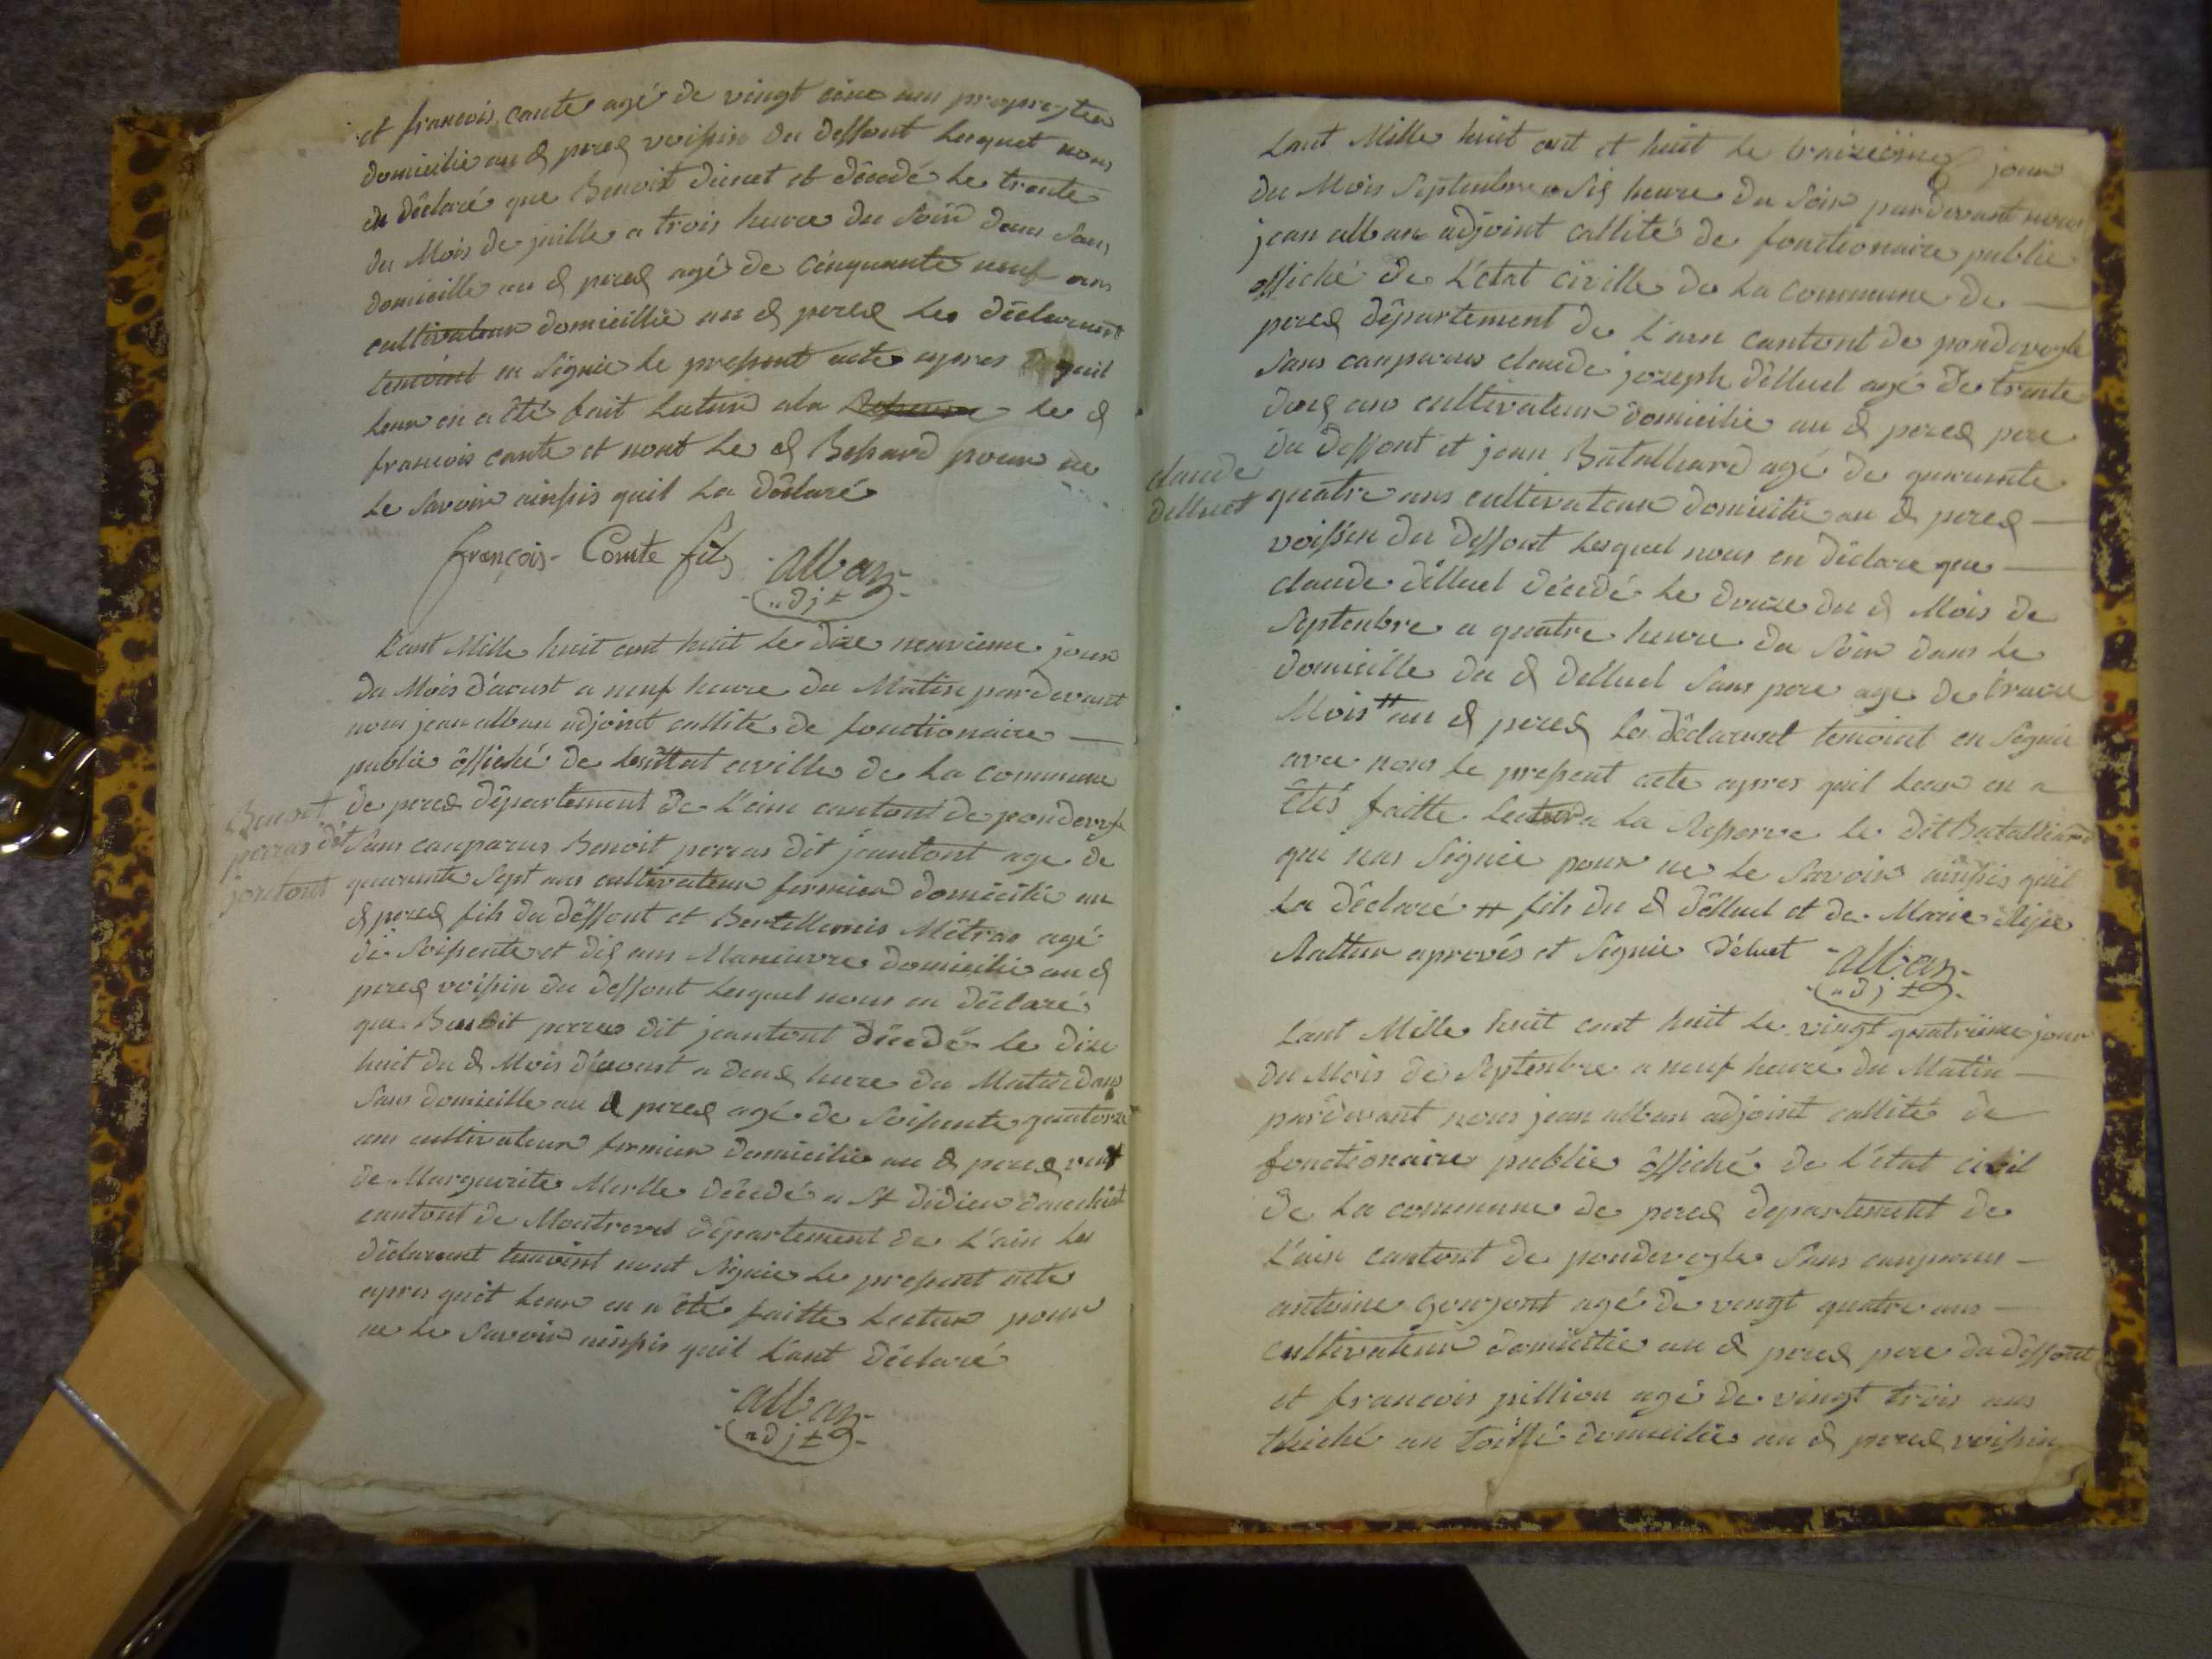 et francois cante agé de vingt cinc ans propreyter
domicilie au d perex voissin du deffont lesquet nous
en déclaré que Benoit dinet et décédé le trente
du Mois de juille a trois heure du soird dans sans
domicille au d perex agé de cinquante neuf ans
cultivateur domicillie au d perex les déclarent
temoint on signie le present acte apres quil
leur en a été fait lectur a la Reserve le d
francois cante et nont le d Besard pour ne
le savoir ainssis quil la déclaré
françois Comte fils alban
adjt
Lant Mille huit cent huit le dixe neuvieme jour
du Mois d'aoust a neuf heure du Matin pardevant
nous jean alban adjoint callité de fonctionaire
public officié de l'ettat civille de la commune
Benoit
perras dit
jontont
de perex département de l'ain cantont de pondevesle
sans conparus Benoit perras dit jeantont age de
quarante sept ans cultivateur fermier domicilié au
d perex fils du deffont et Bertellemis Métras agé
de soissente et dix ans Maneuvre domicilie au d
perex voissin du deffont lesquel nous en déclaré
que Benoit perras dit jeantont décédé le dixe
huit du d Mois d'aoust a deux heure du Matin dans
sans domicille au d perex agé de soissente quatorze
ans cultivateur fermier domicilie au d perex veuf
de Marguerite Merlle décédé a St didier
cantont de Montrevel département de l'ain les
déclarent temoint nont signie le present acte
apres quil leur en a été faitte lectur pour
ne le savoir ainssis quil l'ant déclaré
alban
adjt
Lant Mille huit cent et huit le traizieime jour
du Mois Septenbre a six heure du soir pardevant nous
jean alban adjoint callité de fonctionaire public
officié de L'état civille de la commune de
perex département de l'ain cantont de pondevesle
sans conparus claude joseph délluel agé de trente
doux ans cultivateur domicilie au d perex pere
claude
delluet
du deffont et jean Batalliard agé de quarante
quatre ans cultivateur domicilié au d perex
voissin du deffont lesquel nous en déclare que
claude délluel décédé le douze du d Mois de
Septenbre a quatre heure du soir dans le
domicille du d delluel sans pere age de traize
Mois # au d perex les déclarent temoint en signie
avec nous le present acte apres quil leur en a
étés faitte lectur a la Reserve le dit Batalliard
qui nas signie pour ne le savoir ainssis quil
la déclaré # fils du d délluel et de Marie
Rattur aprovés et signie déluet alban
adjt
Lant Mille huit cent huit le vingt quatriéme jour
du Mois de Septenbre a neuf heure du Matin
pardevant nous jean alban adjoint callité de
fonctionaire public officié de l'état civil
de la commune de perex departement de
L'ain cantont de pondevesle sans conparus
antoine goujont agé de vingt quatre ans
cultivateur domicilie au d perex pere du deffont
et francois pillion agé de vingt trois ans
domicilie au d perex voissin